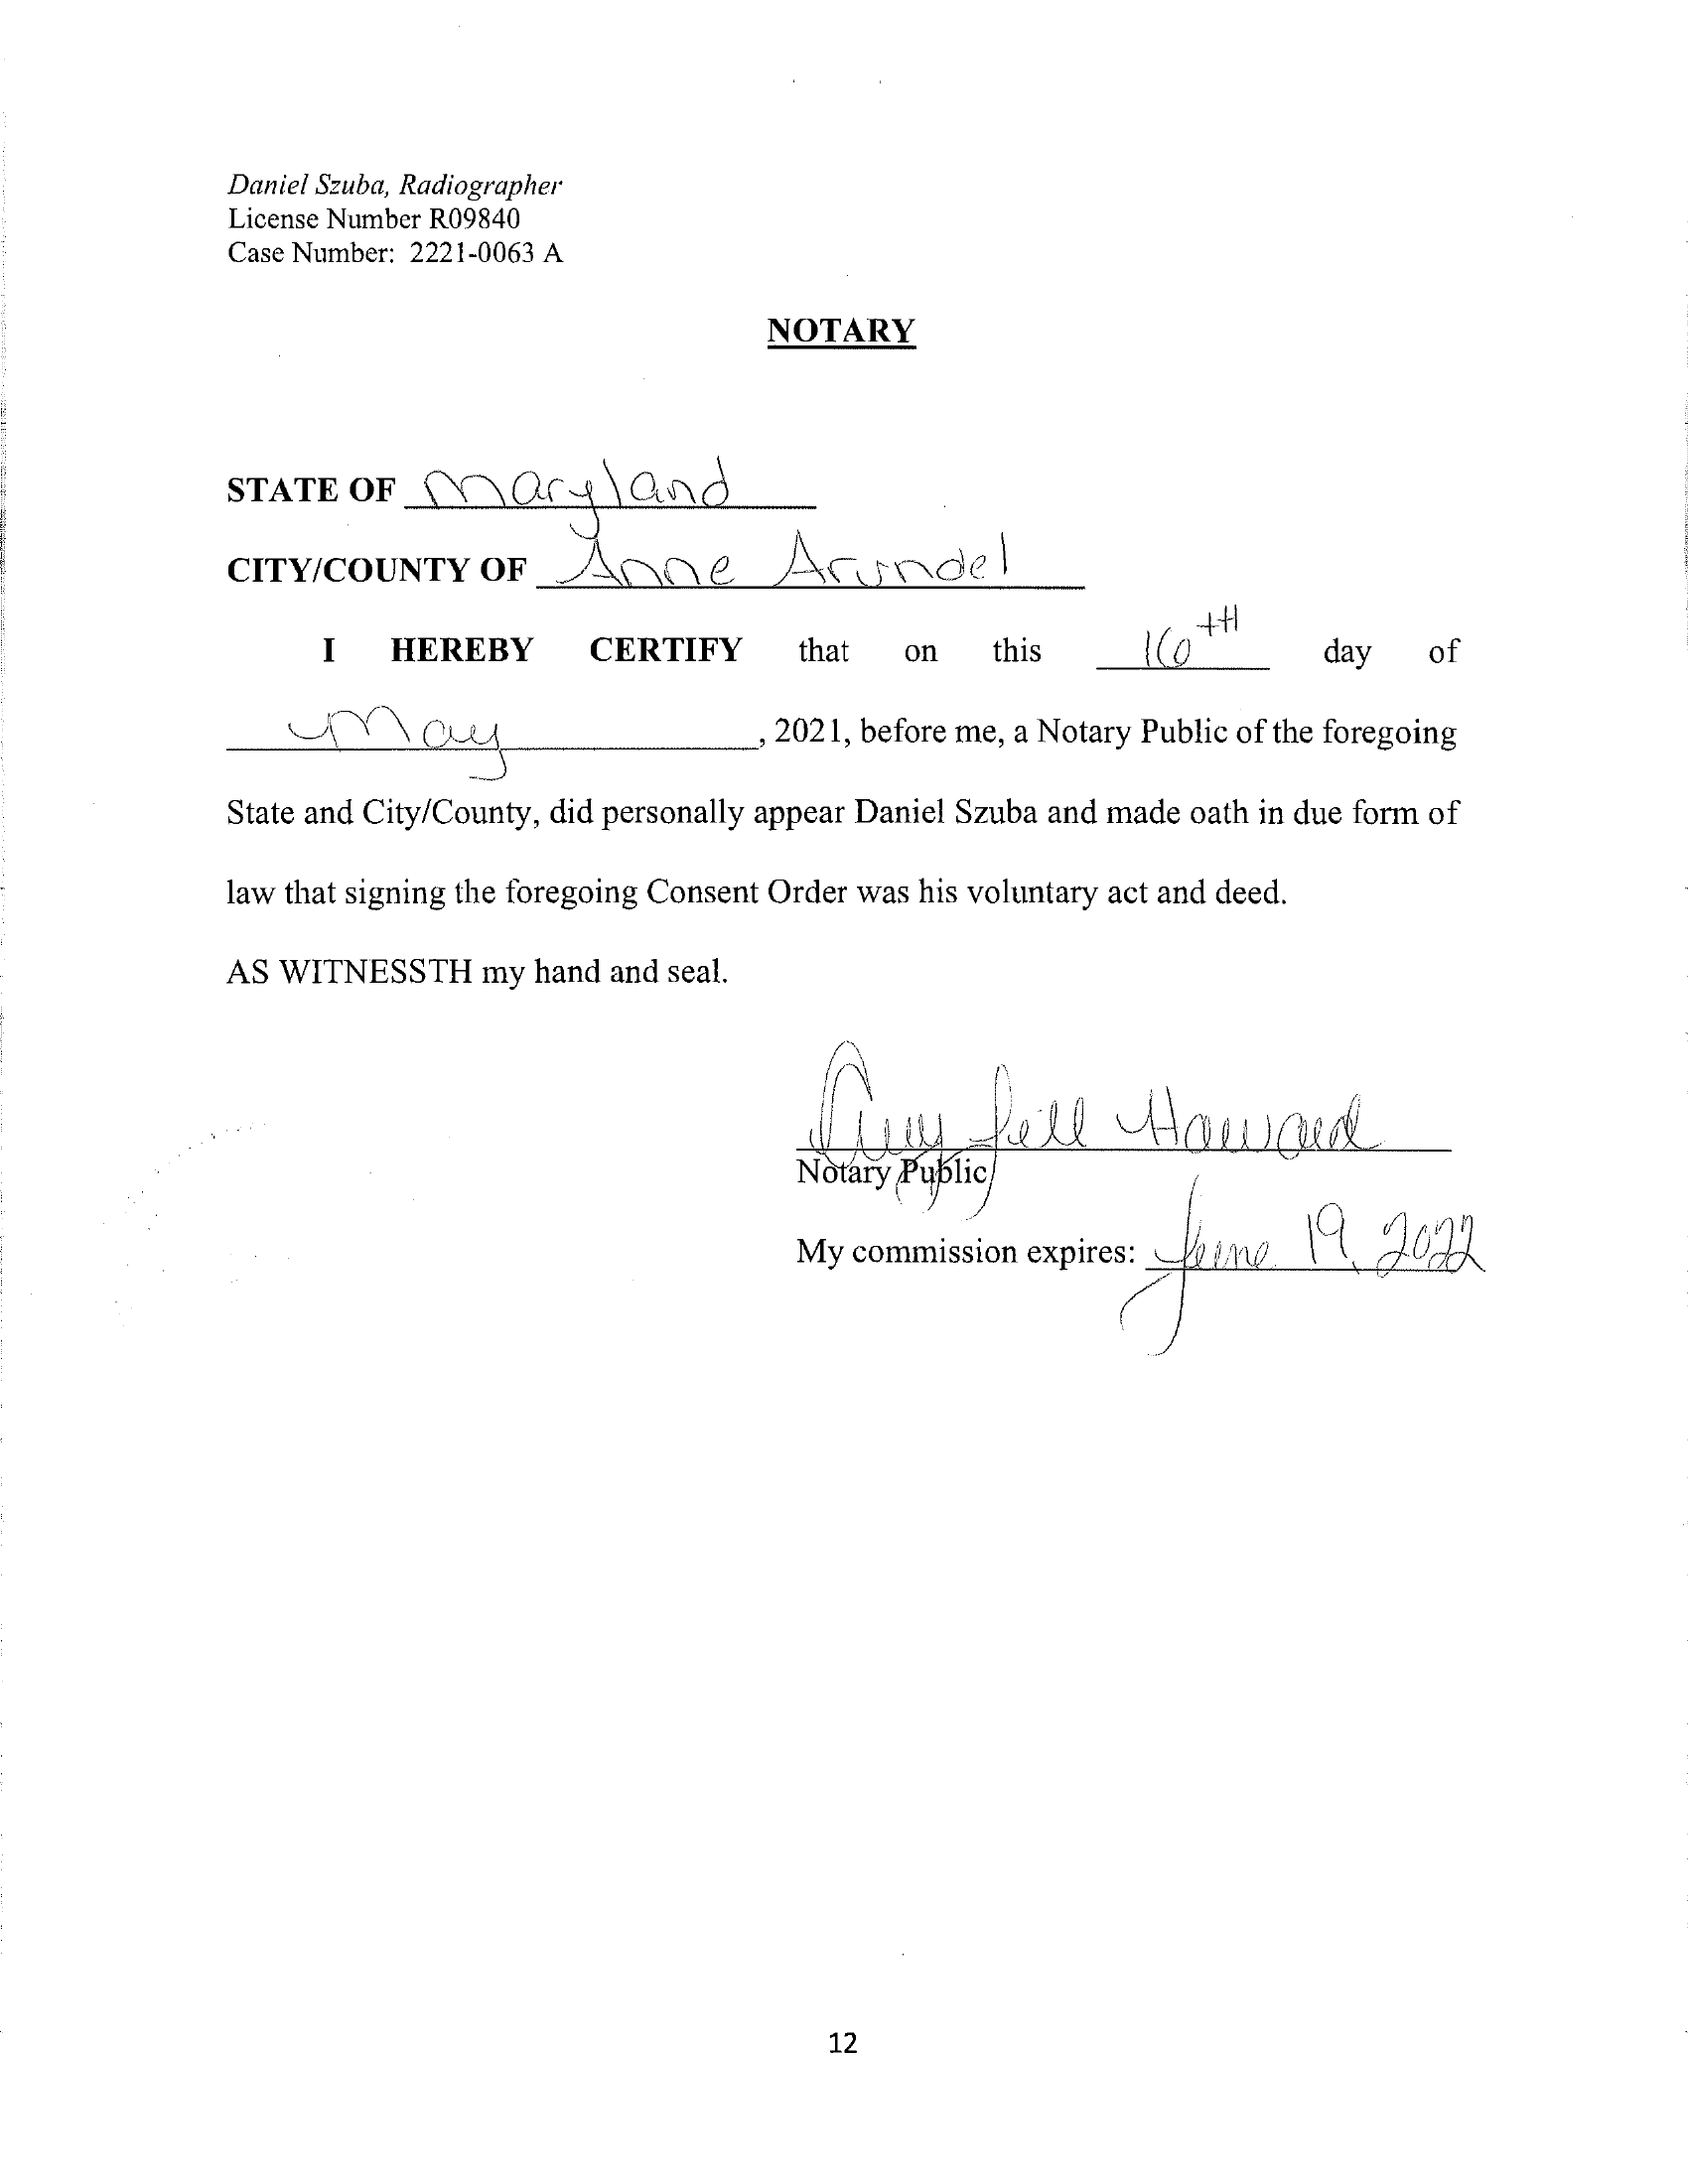 Daniel Szuba, Radiographer
License Number R09840
Case Number: 2221-0063 A
NOTARY
STATE OF Maryland
CITY/COUNTY OF Anne Arundel
I HEREBY CERTIFY that on this 16TH day of
May, 2021, before me, a Notary Public of the foregoing
State and City/County, did personally appear Daniel Szuba and made oath in due form of
law that signing the foregoing Consent Order was his voluntary act and deed.
AS WITNESSTH my hand and seal.
Amy Jill Howard
Notary Public
My commission expires: June 19, 2022
12